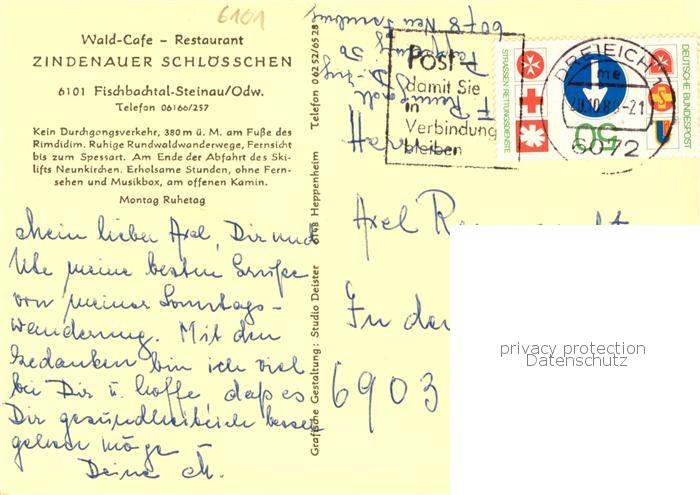 6101
Wald-Cafe - Restaurant
ZINDENAUER SCHLÖSSCHEN
6101 Fischbachtal-Steinau/Odw.
Telefon 06166/257
Kein Durchgongsverkehr, 380 m ü. M. am Fuße des
Rimdidim. Ruhige Rundwaldwanderwege, Fernsicht
bis zum Spessart. Am Ende der Abfahrt des Ski-
lifts Neunkirchen. Erholsame Stunden, ohne Fern-
sehen und Musikbox, am offenen Kamin.
Montag Ruhetag
Mein lieber Axel, Dir und
Ute meine besten Grüße
von meiner Sonntags-
wanderung. Mit den
Gedanken bin ich viel
bei Dir u. hoffe daß es
Dir gesundheitlich besser
gehen möge
Deine M.
Grafische Gestaltung: Studio Deister 6148 Heppenheim Telefon 06252/6528
6078 Neu
Post -
damit Sie
in
Verbindung
bleiben
DREIEICH 1
me
-21
6072
STRASSEN-RETTUNGSDIENSTE
50
DEUTSCHE BUNDESPOST
Axel
In der
6903
privacy protection
Datenschutz